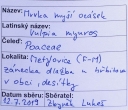 Název: Mrvka myší ocásek
Latinský název:
Vulpia myuros
Čeleď: Poaceae
Lokalita: Střežovice (P-M)
zámecká dlažba u
v obci, desítky
Datum sběru: Sběratel:
12.7.2019 Zbyněk Lukeš